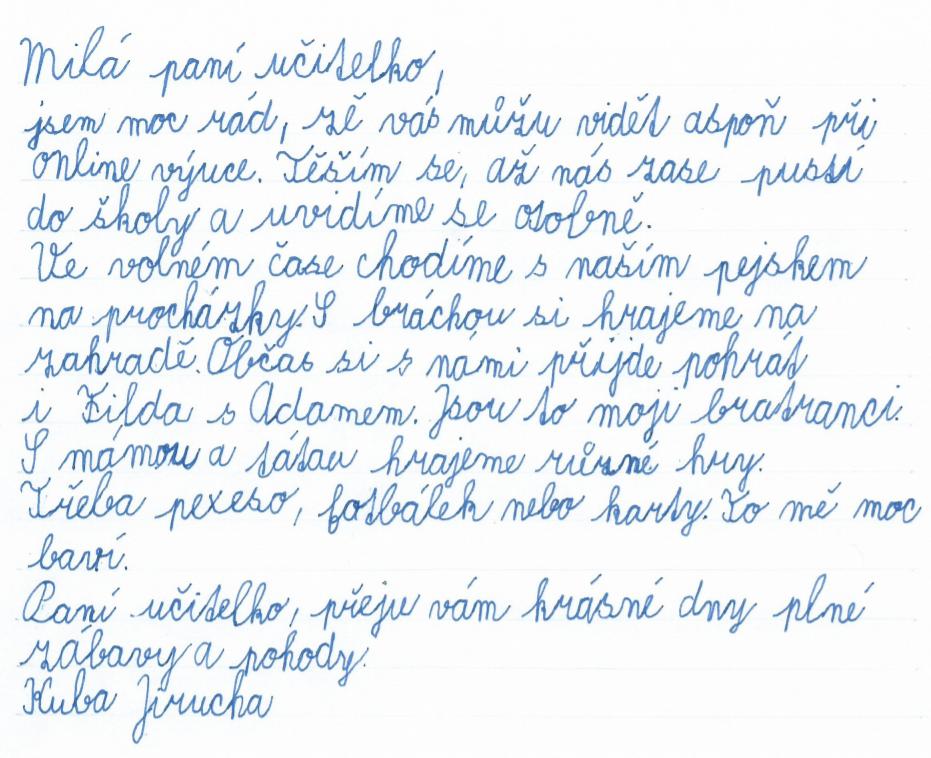 Milá paní učitelko,
jsem moc rád, zě vás můžu vidět aspoň při
online výuce. Těším se, až nás zase pustí
do školy a uvidíme se osobně.
Ve volném čase chodíme s naším pejskem
na procházky. S bráchou si hrajeme na
zahradě. Občas si s námi příjde pohrát
i Zilda s Adamem. Jsou to moji bratranci.
S mámou a tátou hrajeme různé hry.
Třeba pexeso, fotbálek nebo karty. To mě moc
baví.
Paní učitelko, přeju vám krásné dny plné
zábavy a pohody.
Kuba Jirucha